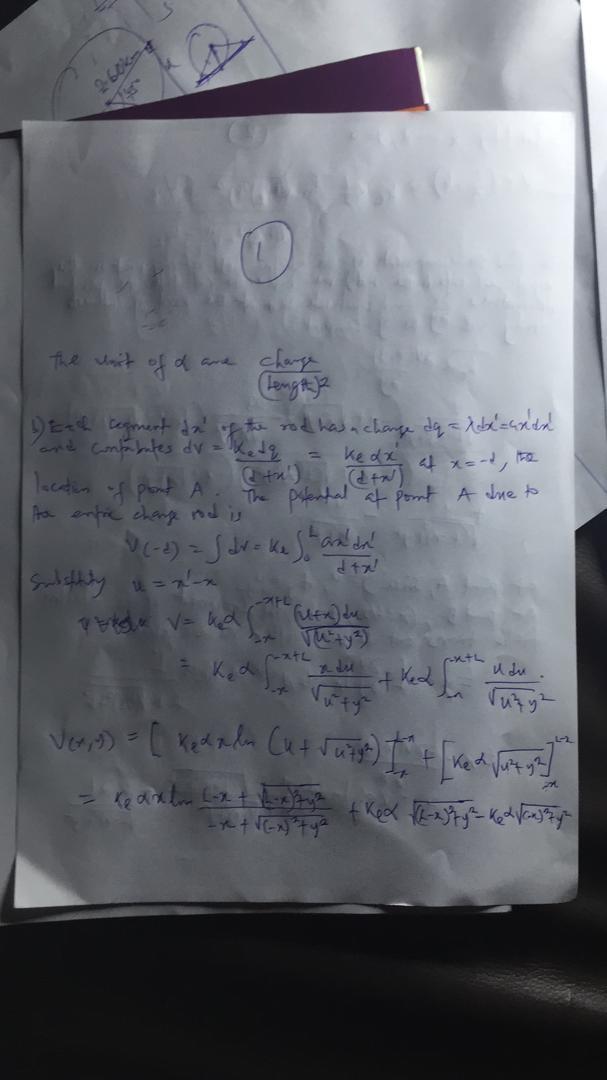 260km
45°
1
The unit of α are charge/(Length)²
b) Each segment dx' of the rod has a charge dq = λdx' = αx'dx'
and contributes dV = Kₑdq/(d+x') = Kₑαx'/(d+x') at x = -d, the
location of point A. The potential at point A due to
the entire charge rod is
V(-d) = ∫dV = Kₑ∫₀ᴸ αx'dx'/(d+x')
u = x'-x
V = Kₑα ∫₋ₓ^(-x+L) (u+x)du/√(u²+y²)
= Kₑα ∫₋ₓ^(-x+L) x du/√(u²+y²) + Kₑα ∫₋ₓ^(-x+L) u du/√(u²+y²)
V(x,y) = [Kₑαx ln (u+√(u²+y²))]₋ₓ^(L-x) + [Kₑα√(u²+y²)]₋ₓ^(L-x)
= Kₑαx ln (L-x+√((L-x)²+y²))/(-x+√((-x)²+y²)) + Kₑα√((L-x)²+y²) - Kₑα√((-x)²+y²)